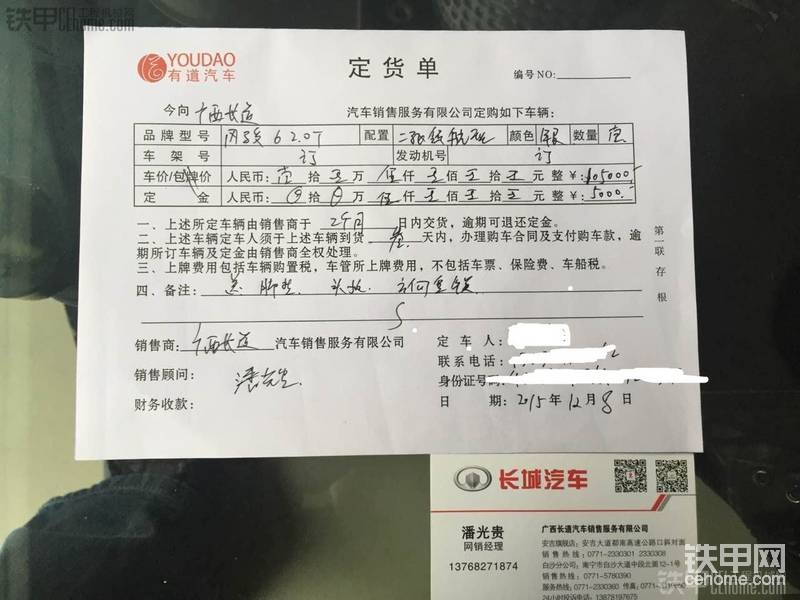 铁甲网
YOUDAO
有道汽车
定货单
编号NO:
今向 广西长道 汽车销售服务有限公司定购如下车辆:
品牌型号 风骏6 2.0T 配置 二驱 颜色 银 数量 壹
车架号 订 发动机号 订
车价/包牌价 人民币: 壹拾 万 伍仟 佰 拾 元 整 ¥: 105000
定金 人民币: 拾 万 伍仟 佰 拾 元 整 ¥: 5000.
一、上述所定车辆由销售商于 2个月 日内交货,逾期可退还定金。
二、上述车辆定车人须于上述车辆到货 叁 天内,办理购车合同及支付购车款,逾
期所订车辆及定金由销售商全权处理。
三、上牌费用包括车辆购置税,车管所上牌费用,不包括车票、保险费、车船税。
四、备注: 送 脚垫
第一联存根
销售商: 广西长道 汽车销售服务有限公司
定车人:
联系电话:
销售顾问: 潘
身份证号码:
财务收款:
日期: 2015年12月8日
长城汽车
潘光贵
网销经理
13768271874
广西长道汽车销售服务有限公司
安吉旗舰店: 安吉大道都南高速公路口斜对面
销售热线: 0771-2330301 2330308
白沙分公司: 南宁市白沙大道中段北面12-1号
销售热线: 0771-5780390
服务热线: 0771-2330360 传真: 0771-
24小时投诉电话: 13878197675
铁甲网
cehome.com